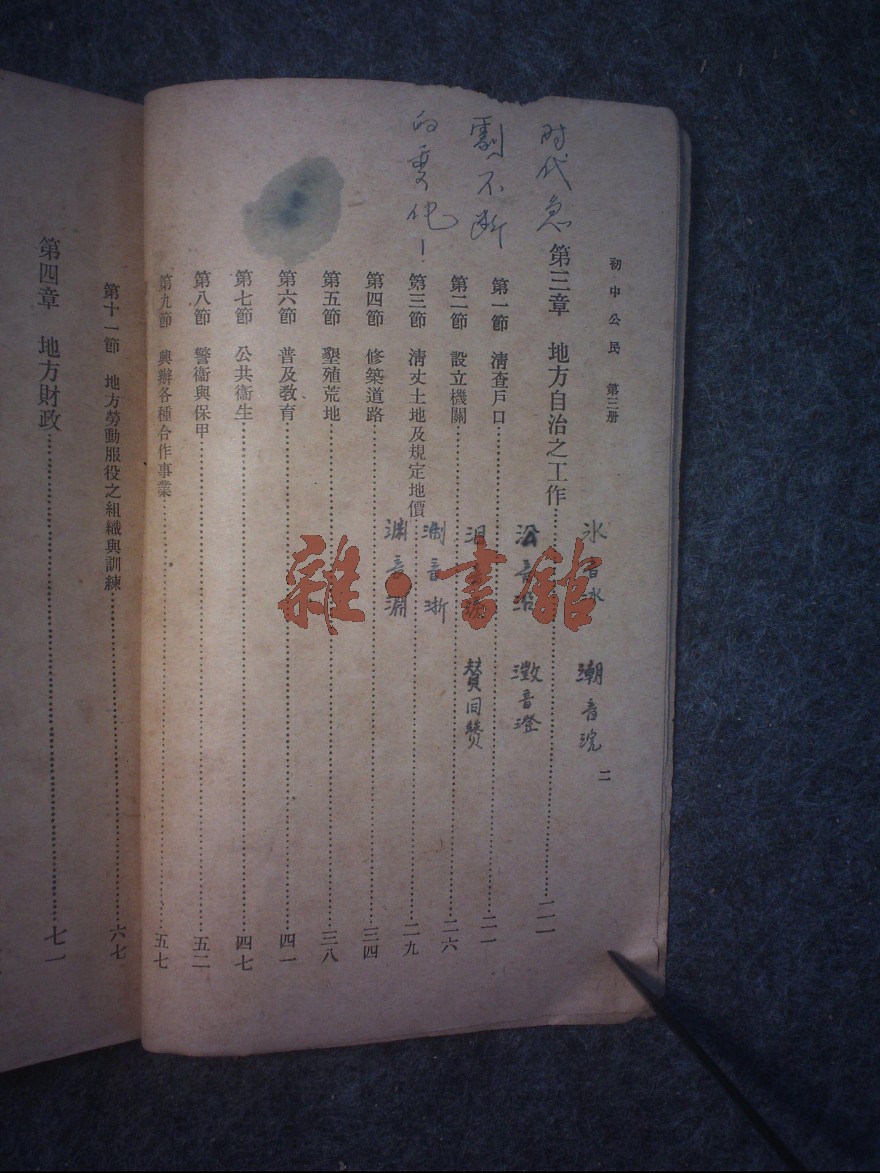 初中公民 第三册
二
时代急
劇不断
的变化！
第三章 地方自治之工作……二一
第一節 清查戶口……二一
第二節 設立機關……二六
第三節 清丈土地及規定地價……二九
第四節 修築道路……三四
第五節 墾殖荒地……三八
第六節 普及教育……四一
第七節 公共衞生……四七
第八節 警衞與保甲……五二
第九節 興辦各種合作事業……五七
潮音
澂音澄
賛同贊
音淵
音浙
雜·書館
第十一節 地方勞動服役之組織與訓練……六七
第四章 地方財政……七一